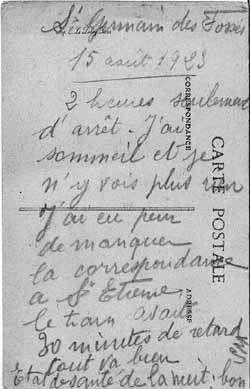 St Germain des Fossés
15 août 1923
2 heures seulement
d'arrêt. J'ai
sommeil et je
n'y vois plus rien
J'ai eu peur
de manquer
la correspondance
a St Etienne,
le train avait
30 minutes de retard
tout va bien
Etat de santé de la nuit: bon
CORRESPONDANCE
CARTE POSTALE
ADRESSE